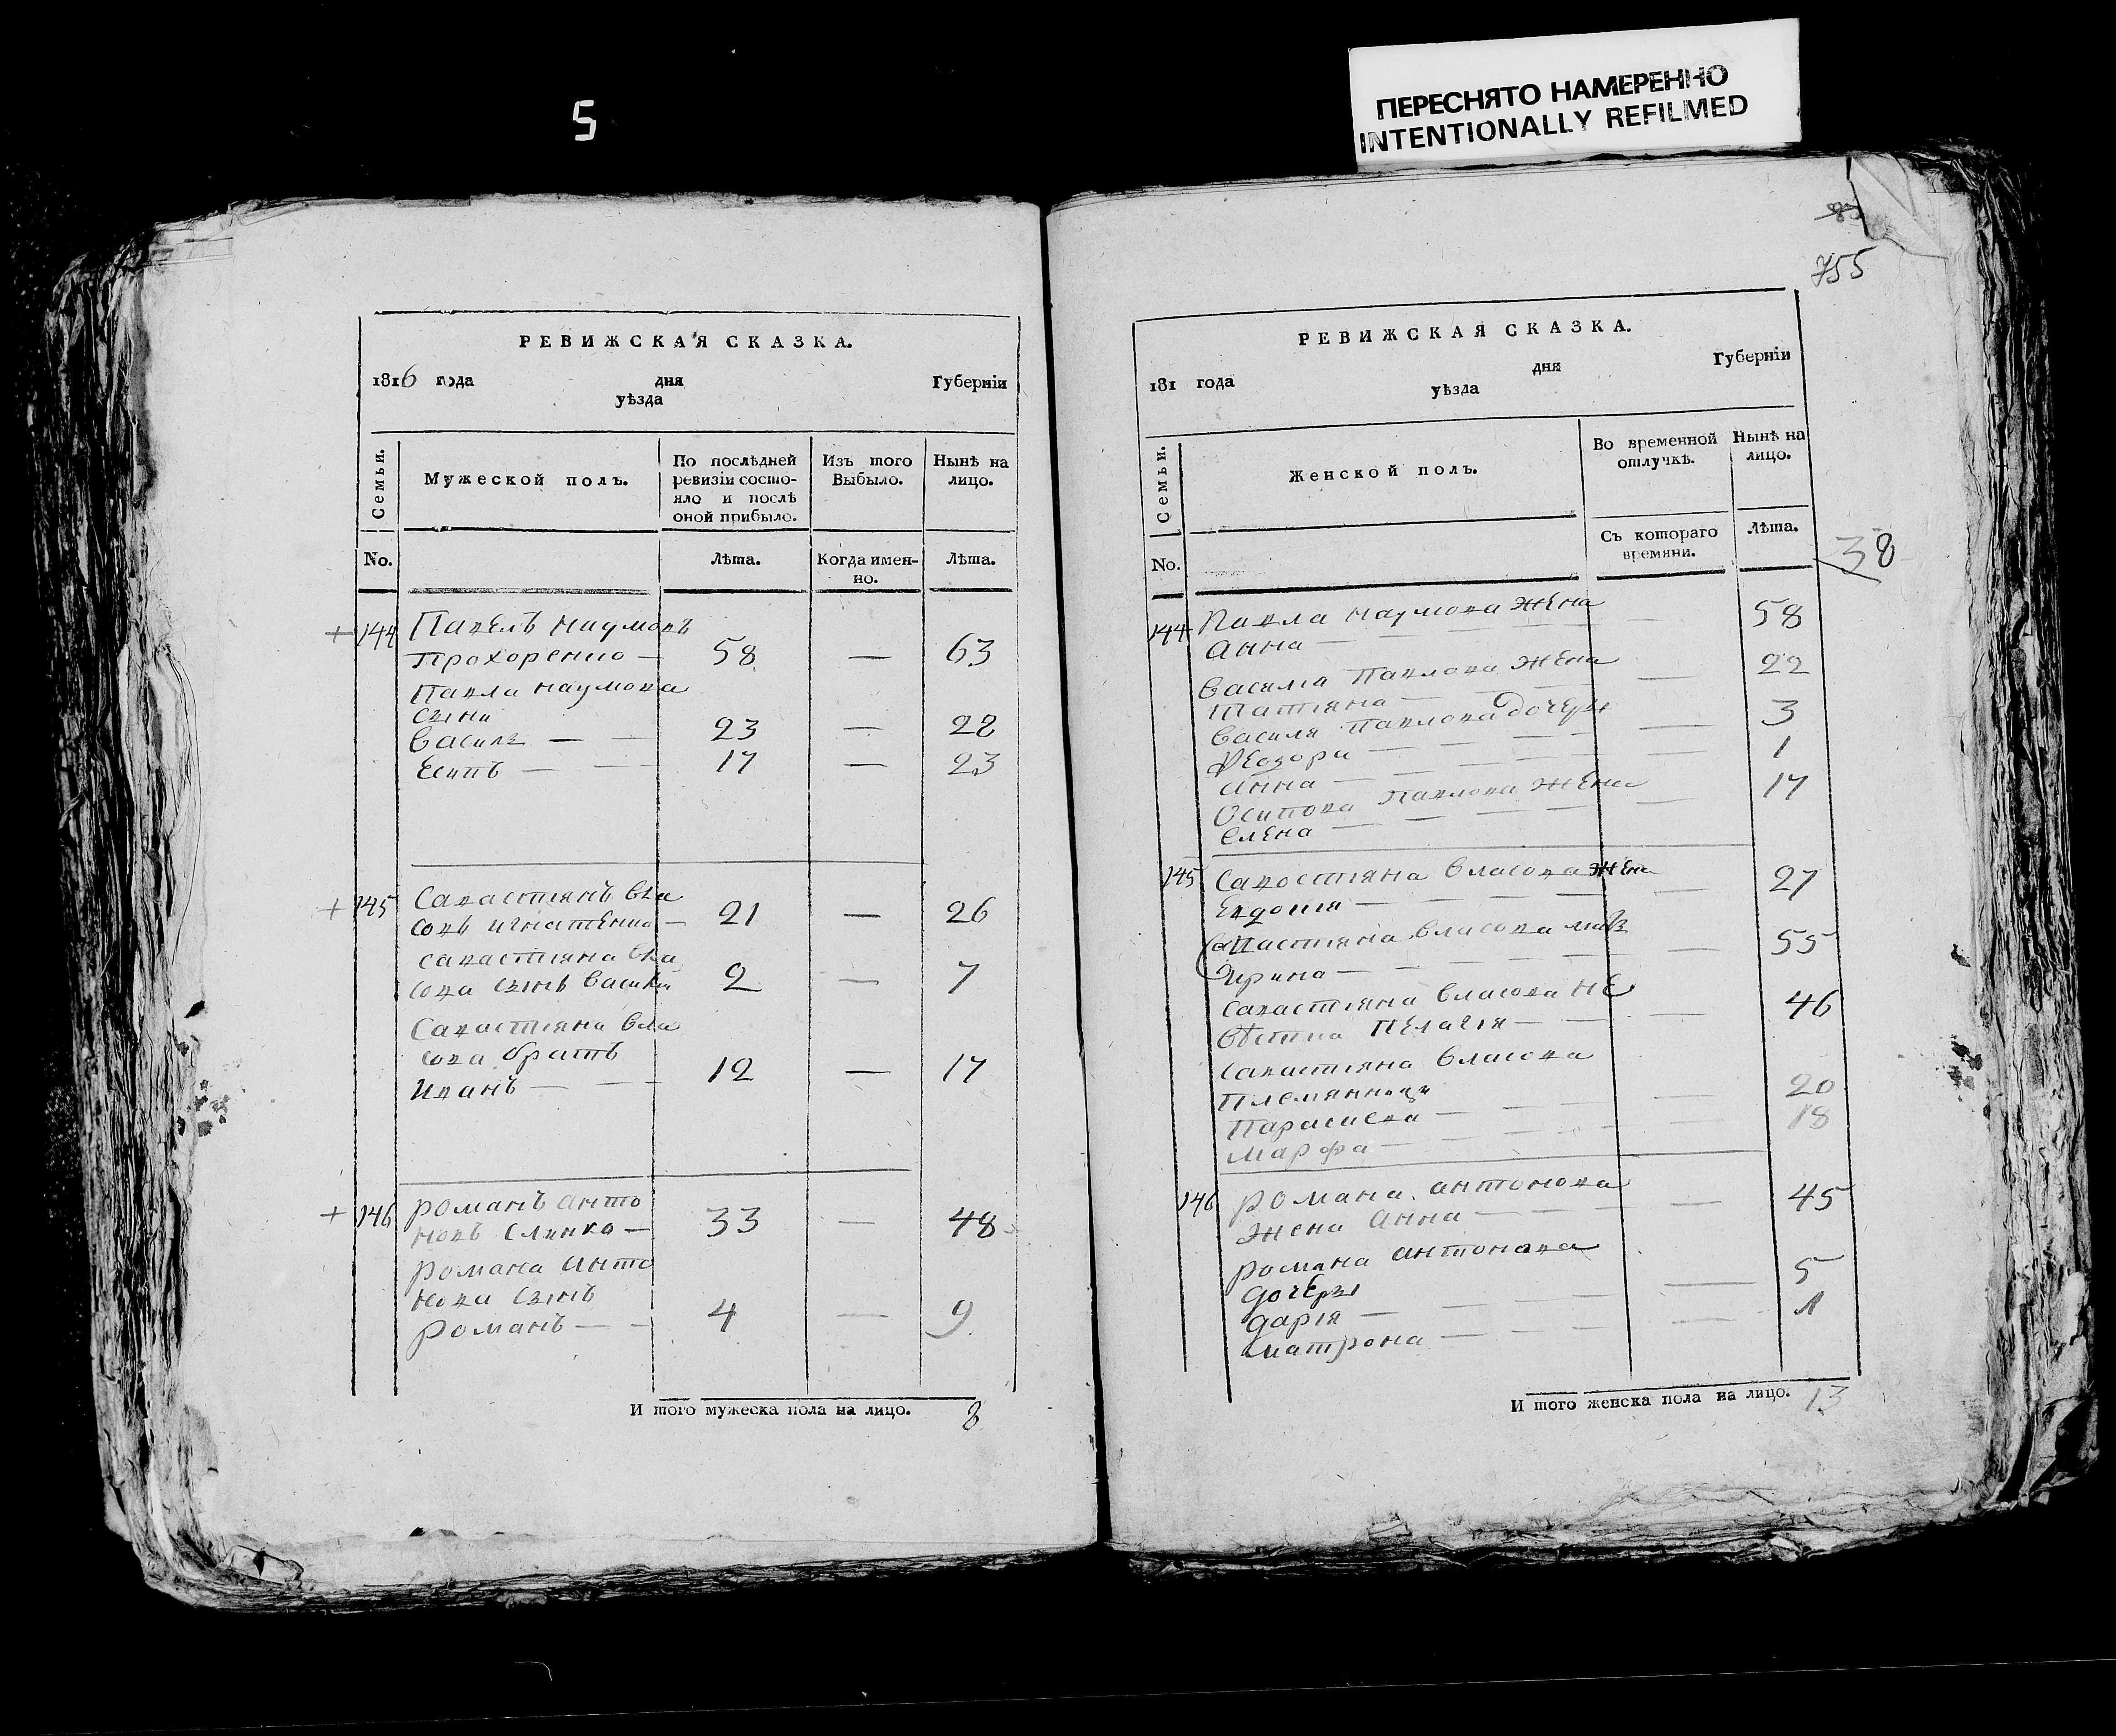 5
ПЕРЕСНЯТО НАМЕРЕННО
INTENTIONALLY REFILMED
755
РЕВИЖСКАЯ СКАЗКА.
1816 года дня Губерніи
уѣзда
Семьи.
Мужеской полъ.
По послѣдней ревизіи состо-
яло и послѣ оной прибыло.
Изъ того Выбыло.
Нынѣ на лицо.
No.
Лѣта.
Когда имен-
но.
Лѣта.
+ 144 Павелъ Наумовъ
Прохоренко — 58 — 63
Павла Наумова
сыни
Василь — — 23 — 28
Есипъ — — 17 — 23
+ 145 Савастіянъ Вла
совъ Игнатенко — 21 — 26
Савастіяна Вла
сова сынъ Василій 2 — 7
Савастіяна Вла
сова братъ
Иванъ — — — 12 — 17
+ 146 Романъ Анто
новъ Слинко — 33 — 48
Романа Анто
нова сынъ
Романъ — — 4 — 9
И того мужеска пола на лицо. 8
РЕВИЖСКАЯ СКАЗКА.
181 года дня Губерніи
уѣзда
Семьи.
Женской полъ.
Во временной отлучкѣ.
Нынѣ на лицо.
No.
Съ котораго времяни.
Лѣта.
38
144 Павла Наумова жена
Анна — — — 58
Василіа Павлова жена
Татіяна — — — 22
Василя Павлова дочери
Феодора — — — 3
Анна — — — 1
Осипова Павлова жена
Елена — — — 17
145 Савостіяна Власова жена
Евдокія — — — 27
Савастіяна Власова
Ирина — — — 55
Савастіяна Власова не
вѣстка Пелагія — — 46
Савастіяна Власова
племянницы
Параскева — — — 20
Марфа — — — 18
146 Романа Антонова
жена Анна — — — 45
Романа Антонова
дочеры
Дарія — — — 5
Матрона — — — 1
И того женска пола на лицо. 13